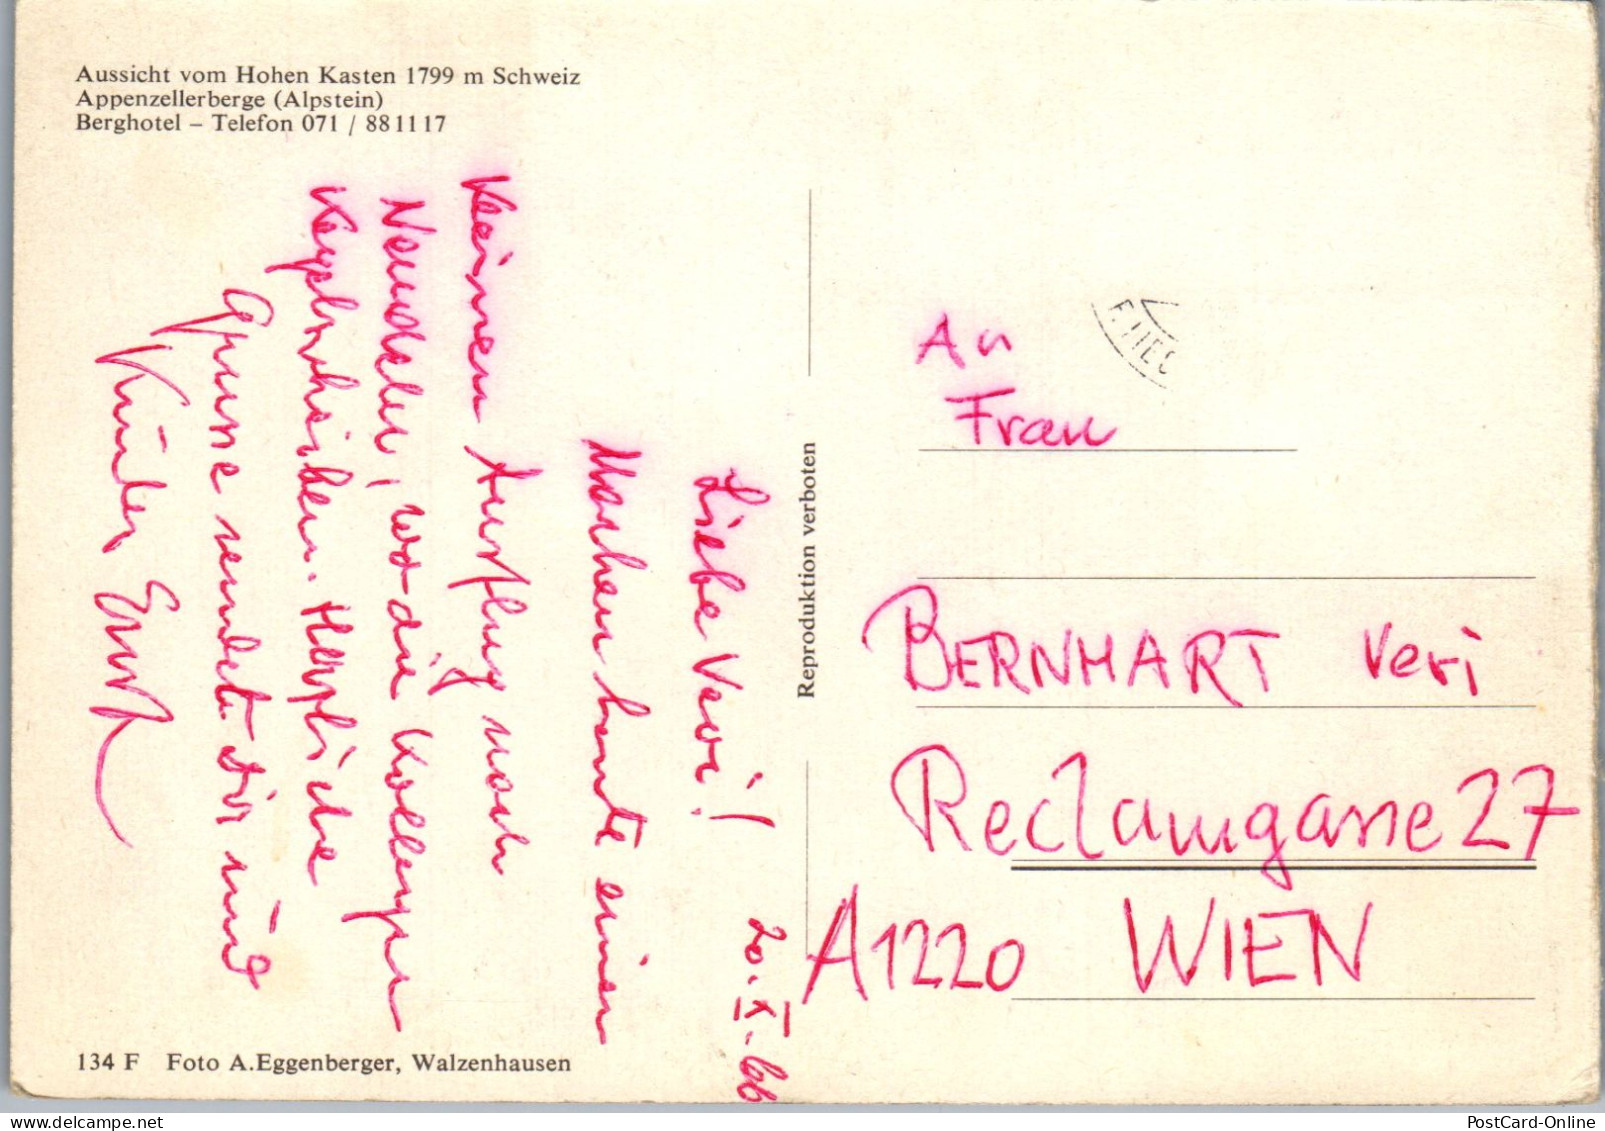 Aussicht vom Hohen Kasten 1799 m Schweiz
Appenzellerberge (Alpstein)
Berghotel – Telefon 071 / 88 11 17
20. X. 66
Liebe Veri!
Machen heute einen
kleinen Ausflug nach
, wo die Kollegen
. Herzliche
Grüsse sendet dir und
Kinder, Ernst
134 F Foto A.Eggenberger, Walzenhausen
Reproduktion verboten
An
Frau
BERNHART Veri
Reclamgasse 27
A1220 WIEN
PostCard-Online